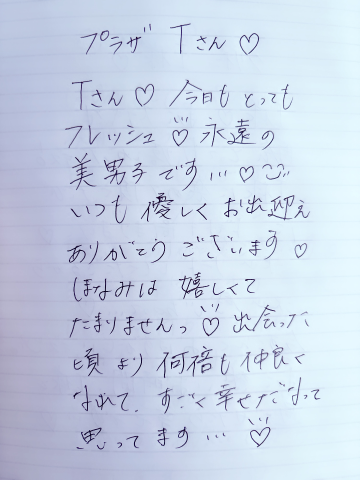 プラザ Tさん♡
Tさん♡ 今日もとっても
フレッシュ♡ 永遠の
美男子です…♡
いつも 優しく お出迎え
ありがとう ございます♡
ほなみは 嬉しくて
たまりませんっ♡ 出会った
頃より 何倍も 仲良く
なれて、すごく幸せだなって
思ってます…♡